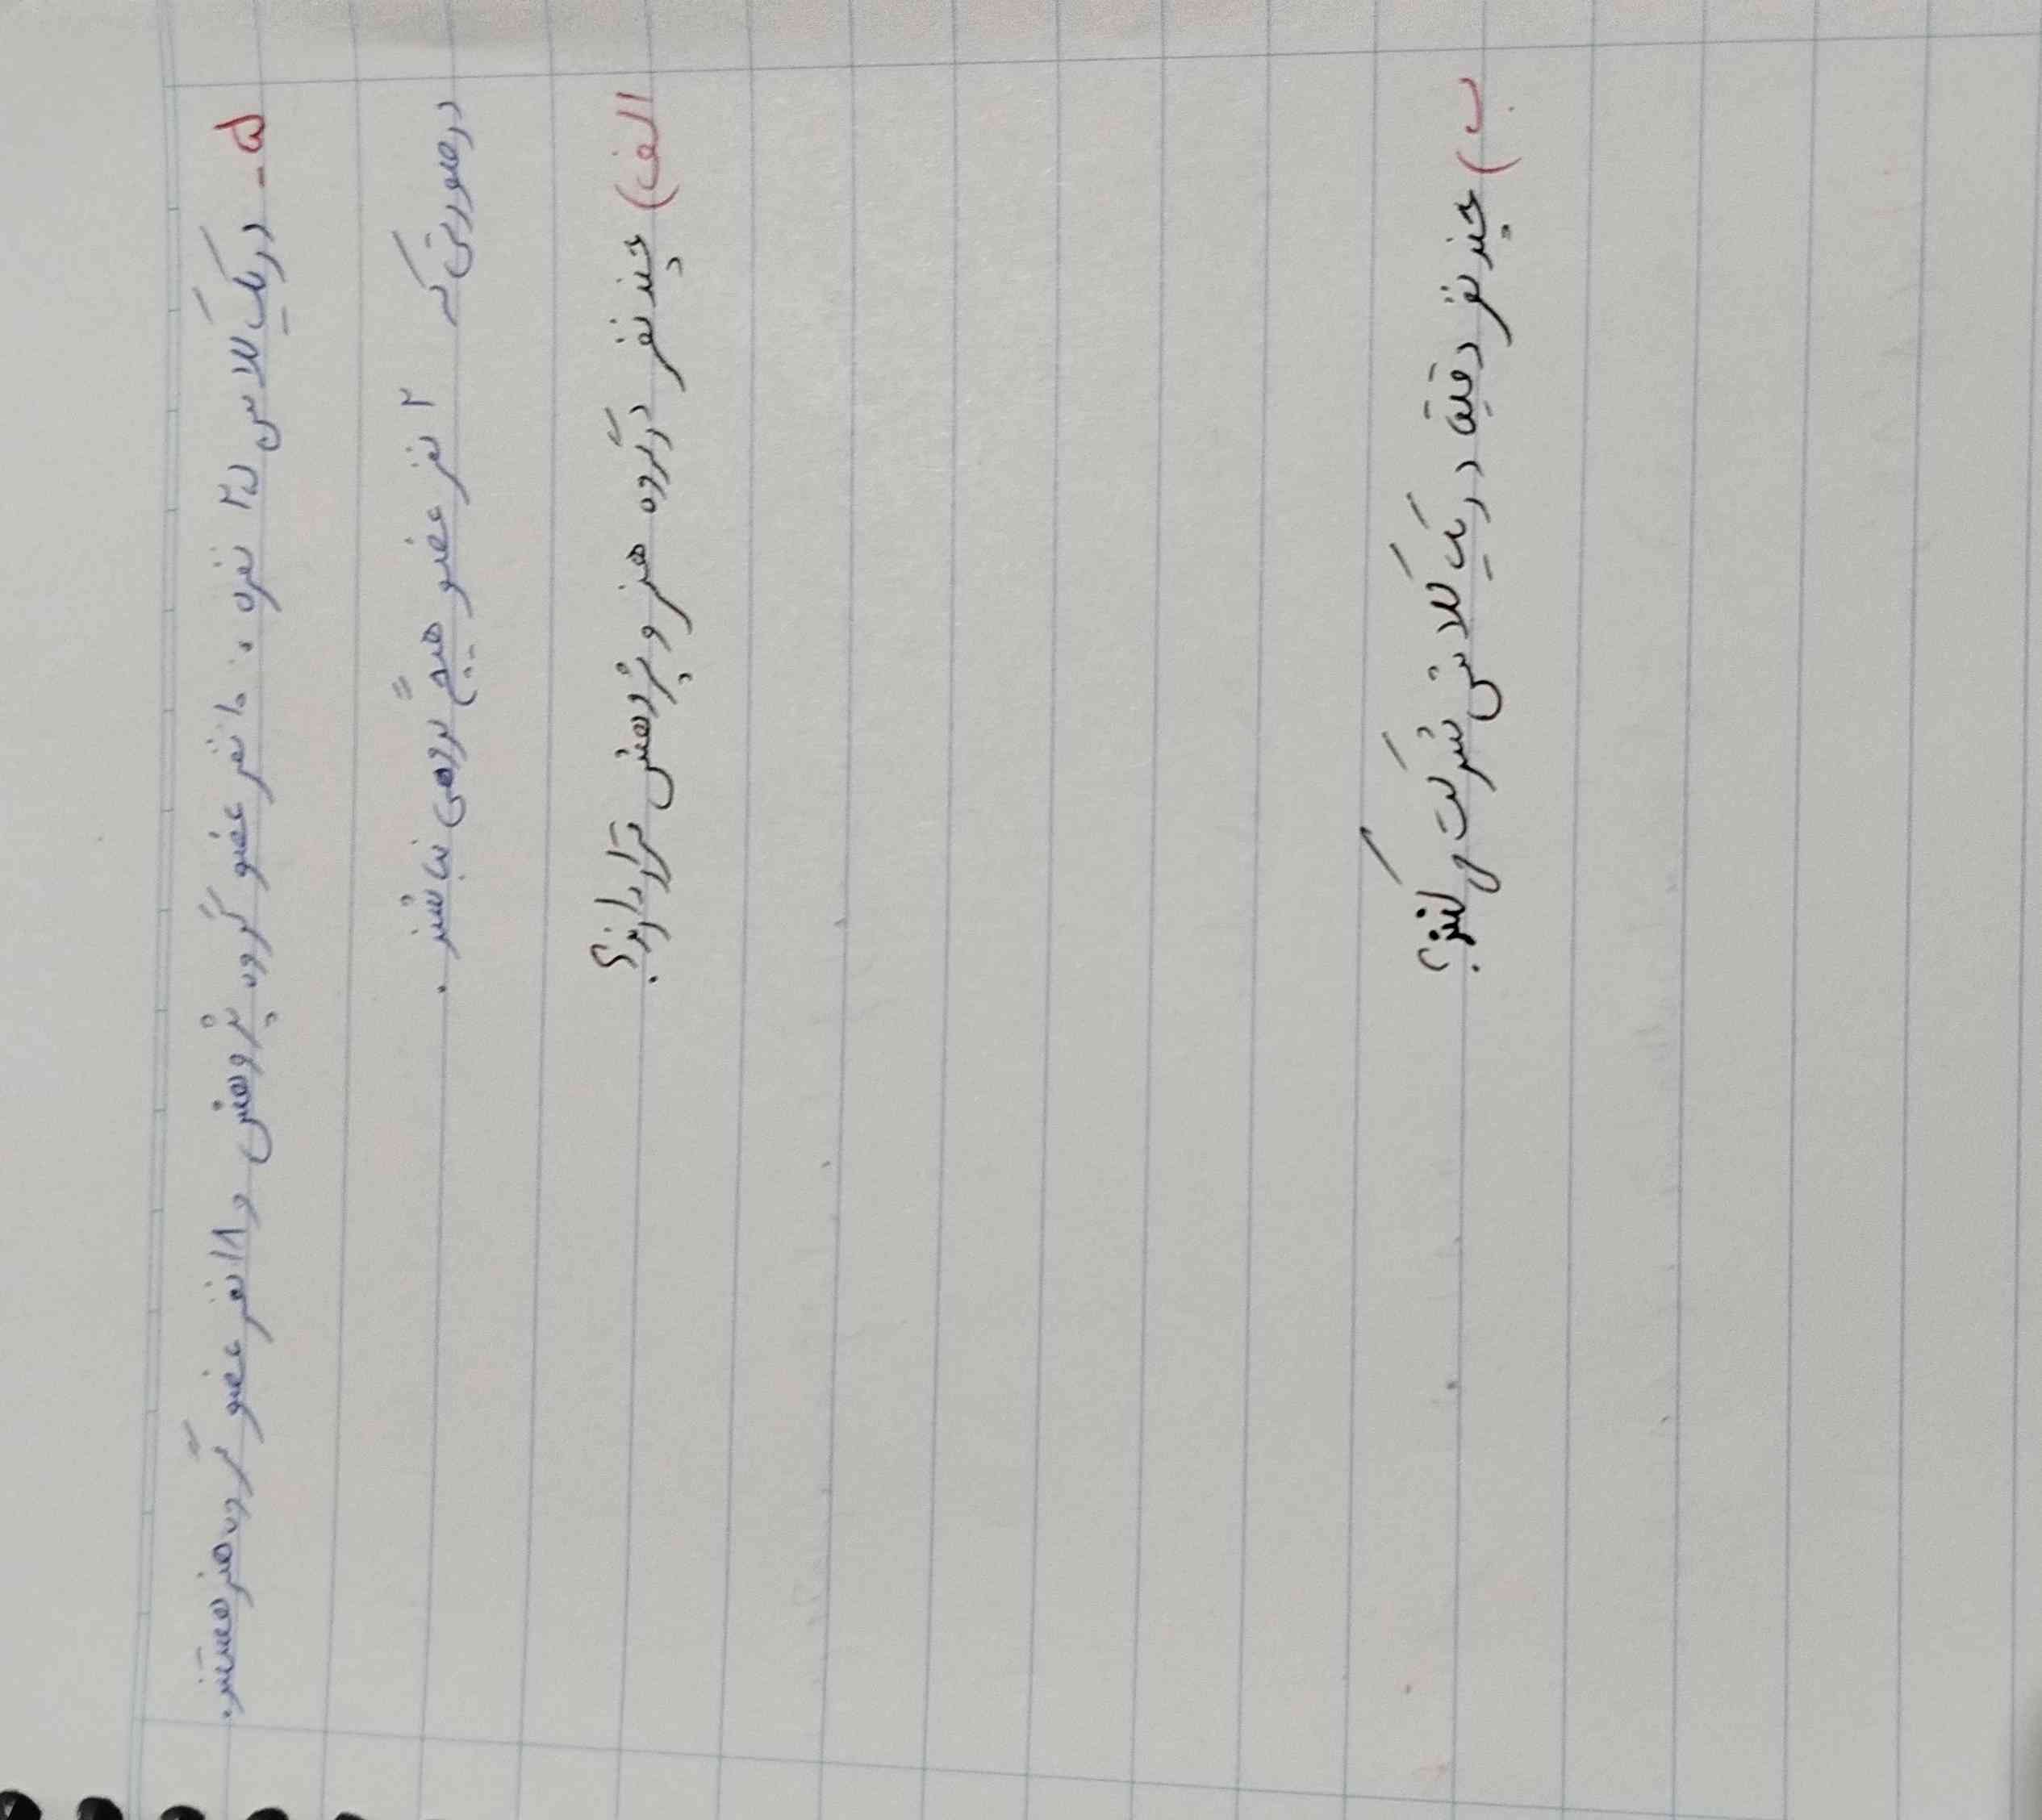 ۵- در یک کلاس ۲۵ نفره، ۱۰ نفر عضو گروه پژوهش و ۱۸ نفر عضو گروه هنر هستند.
در صورتی که ۲ نفر عضو هیچ گروهی نباشند.
الف) چند نفر در گروه هنر و پژوهش قرار دارند؟
ب) چند نفر دقیقا در یک کلاس شرکت می کنند؟